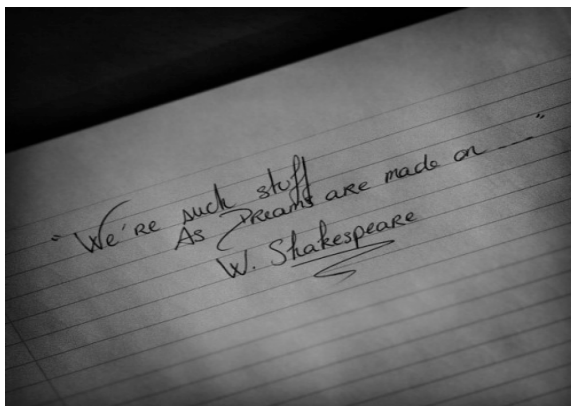 "We're such stuff
As Dreams are made on ....."
W. Shakespeare